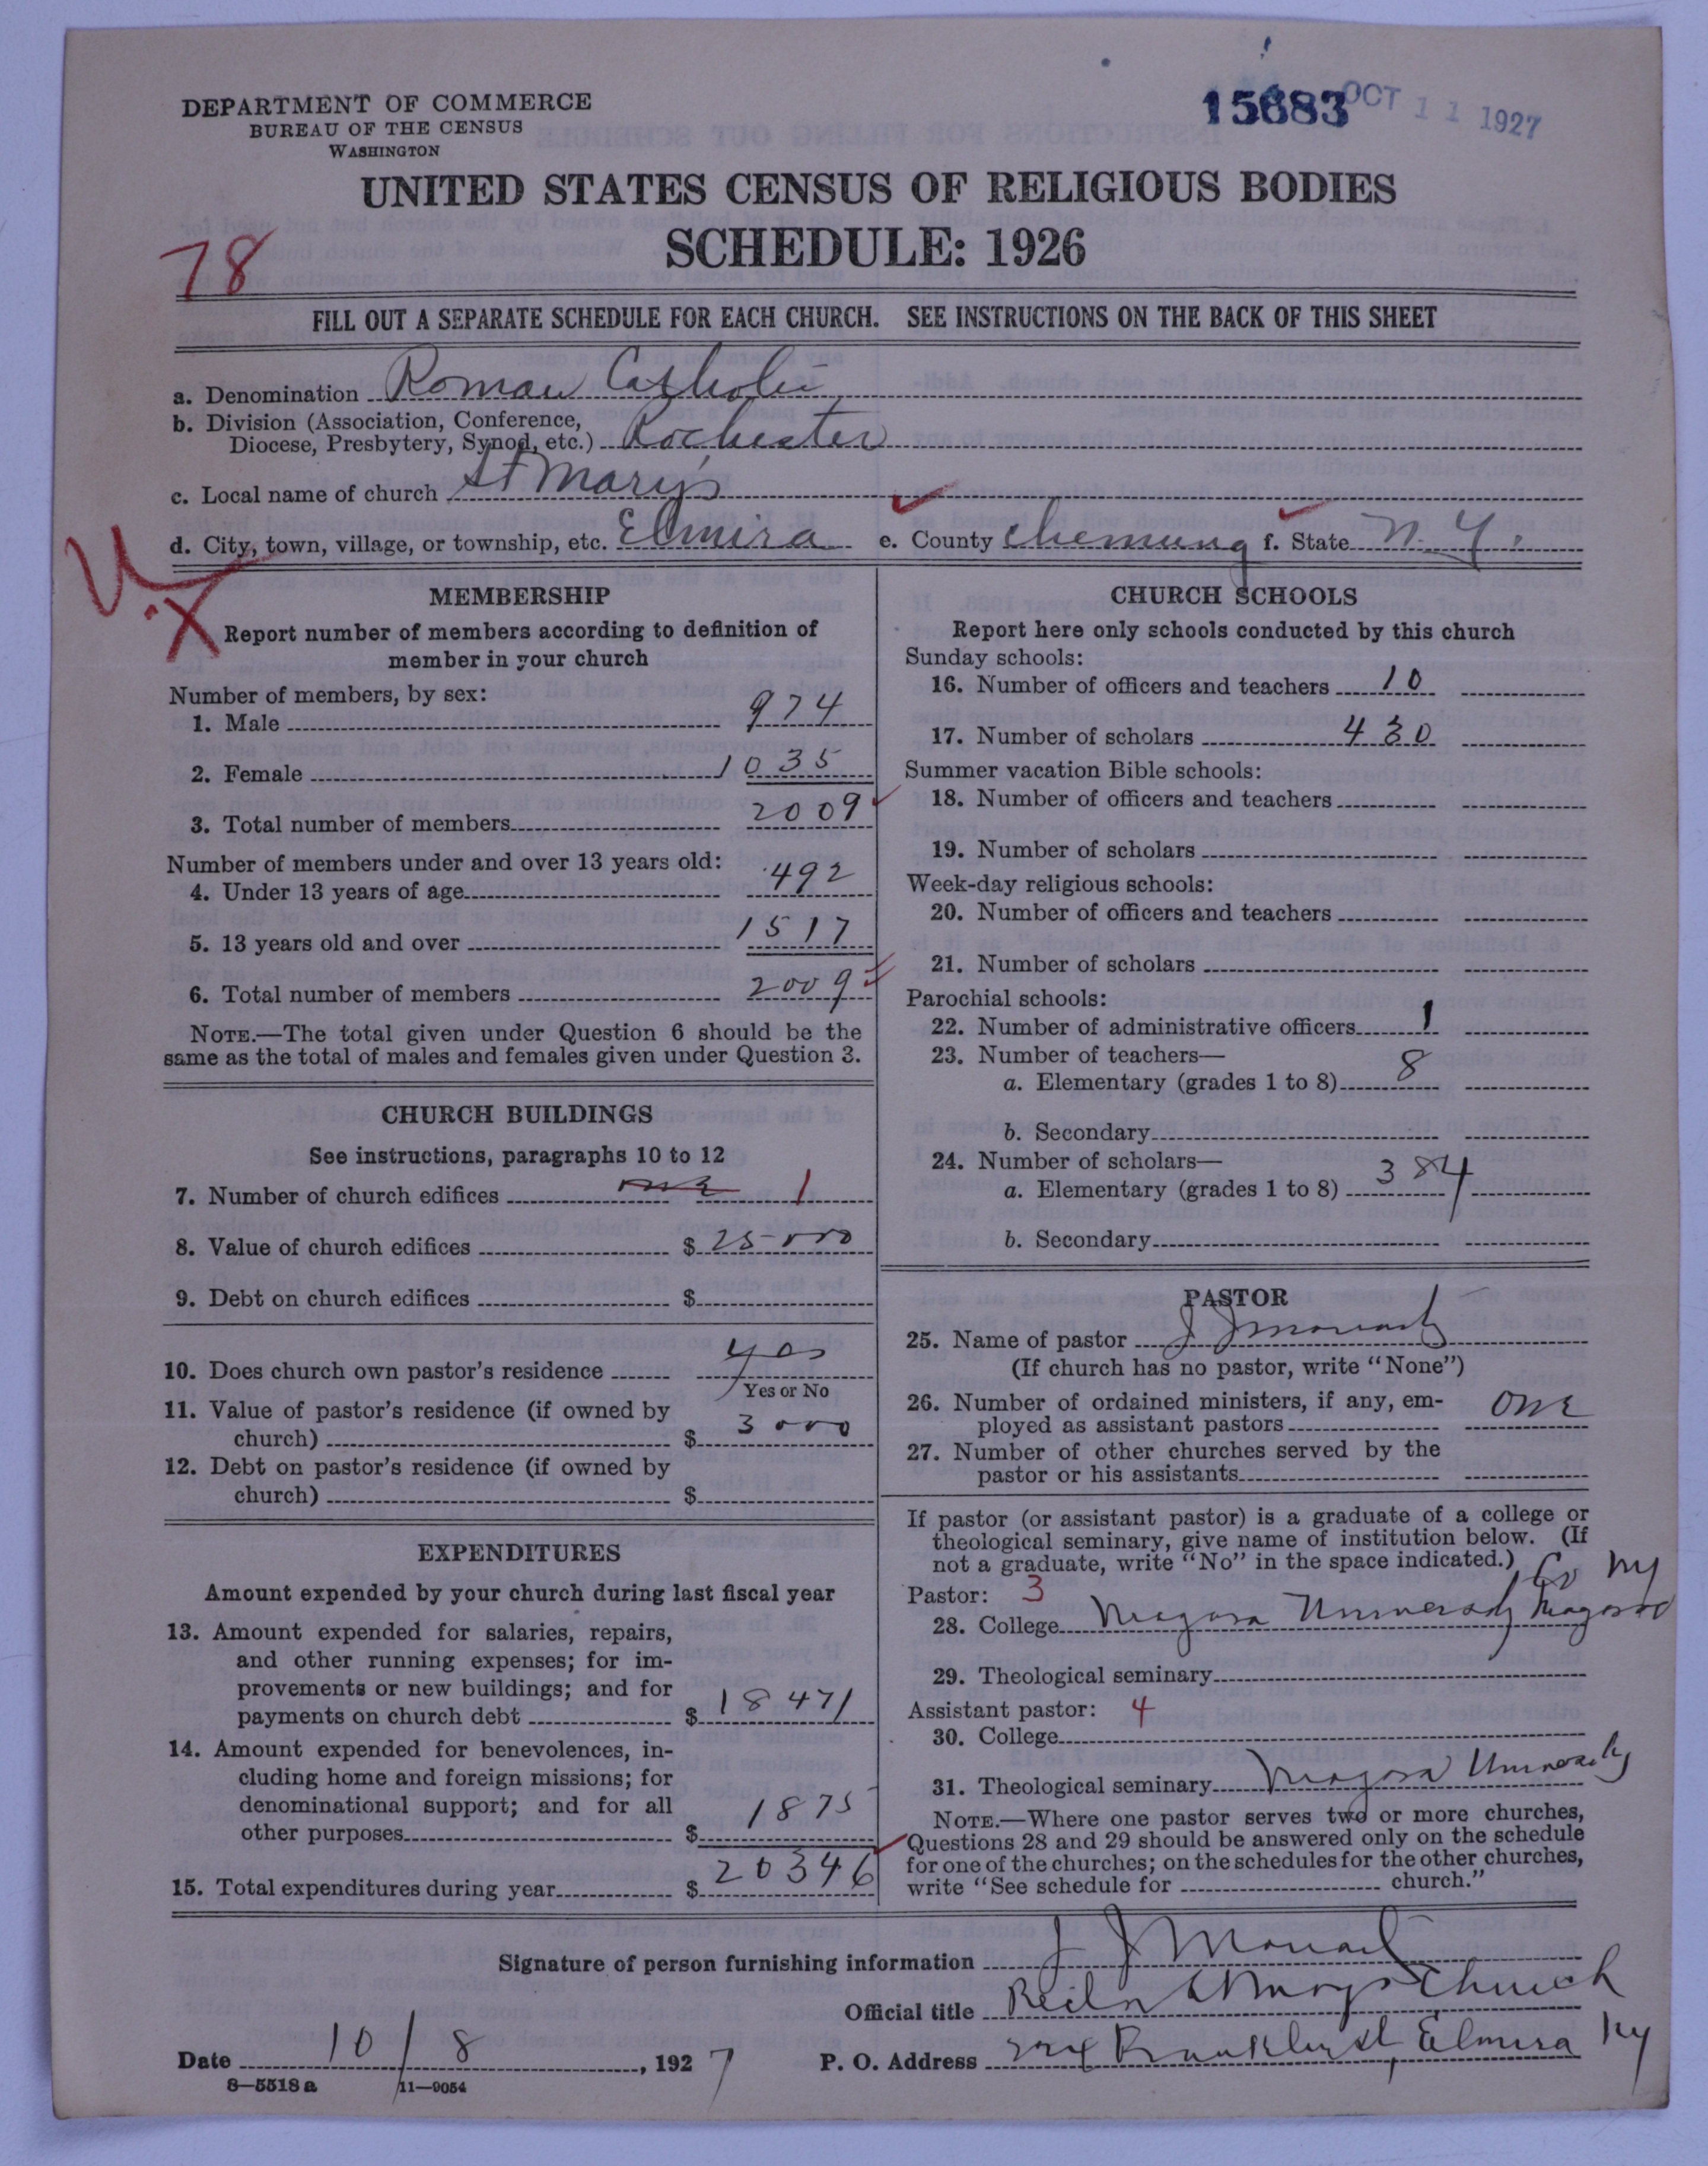 15683 OCT 11 1927
DEPARTMENT OF COMMERCE
BUREAU OF THE CENSUS
WASHINGTON
UNITED STATES CENSUS OF RELIGIOUS BODIES
SCHEDULE: 1926
78
FILL OUT A SEPARATE SCHEDULE FOR EACH CHURCH. SEE INSTRUCTIONS ON THE BACK OF THIS SHEET
a. Denomination Roman Catholic
b. Division (Association, Conference,
Diocese, Presbytery, Synod, etc.) Rochester
c. Local name of church St Mary's
d. City, town, village, or township, etc. Elmira e. County Chemung f. State N. Y.
MEMBERSHIP
Report number of members according to definition of
member in your church
Number of members, by sex:
1. Male 974
2. Female 1035
3. Total number of members 2009
Number of members under and over 13 years old:
4. Under 13 years of age 492
5. 13 years old and over 1517
6. Total number of members 2009
NOTE.—The total given under Question 6 should be the
same as the total of males and females given under Question 3.
CHURCH BUILDINGS
See instructions, paragraphs 10 to 12
7. Number of church edifices one 1
8. Value of church edifices $ 25000
9. Debt on church edifices $
10. Does church own pastor's residence yes
Yes or No
11. Value of pastor's residence (if owned by
church) $ 3000
12. Debt on pastor's residence (if owned by
church) $
EXPENDITURES
Amount expended by your church during last fiscal year
13. Amount expended for salaries, repairs,
and other running expenses; for im-
provements or new buildings; and for
payments on church debt $ 18471
14. Amount expended for benevolences, in-
cluding home and foreign missions; for
denominational support; and for all
other purposes $ 1875
15. Total expenditures during year $ 20346
CHURCH SCHOOLS
Report here only schools conducted by this church
Sunday schools:
16. Number of officers and teachers 10
17. Number of scholars 430
Summer vacation Bible schools:
18. Number of officers and teachers
19. Number of scholars
Week-day religious schools:
20. Number of officers and teachers
21. Number of scholars
Parochial schools:
22. Number of administrative officers 1
23. Number of teachers—
a. Elementary (grades 1 to 8) 8
b. Secondary
24. Number of scholars—
a. Elementary (grades 1 to 8) 384
b. Secondary
PASTOR
25. Name of pastor J J
(If church has no pastor, write "None")
26. Number of ordained ministers, if any, em-
ployed as assistant pastors one
27. Number of other churches served by the
pastor or his assistants
If pastor (or assistant pastor) is a graduate of a college or
theological seminary, give name of institution below. (If
not a graduate, write "No" in the space indicated.)
Pastor: 3 Co NY
28. College Niagara University Niagara
29. Theological seminary
Assistant pastor: 4
30. College
31. Theological seminary Niagara University
NOTE.—Where one pastor serves two or more churches,
Questions 28 and 29 should be answered only on the schedule
for one of the churches; on the schedules for the other churches,
write "See schedule for church."
Signature of person furnishing information J J
Official title St Mary's Church
Date 10/8, 1927 P. O. Address 224 Franklin St, Elmira NY
8—5518 a 11—9054